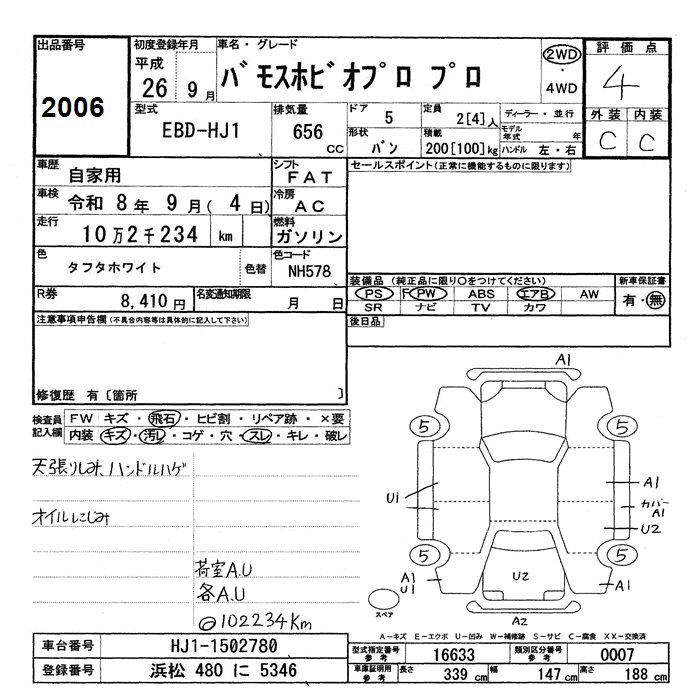 出品番号
2006
初度登録年月
平成
26 9月
車名・グレード
バモスホビオプロ プロ
2WD
・
4WD
評価点
4
外装 内装
C C
型式
EBD-HJ1
排気量
656
CC
ドア
5
定員
2[4]人
形状
バン
積載
200[100]kg
ディーラー・並行
モデル年式 年
ハンドル 左・右
車歴
自家用
シフト
FAT
車検
令和 8年 9月( 4日)
冷房
AC
走行
10万2千234 km
燃料
ガソリン
色
タフタホワイト
色替
色コード
NH578
R券
8,410円
名変通知期限
月 日
セールスポイント(正常に機能するものに限ります)
装備品 (純正品に限り○をつけてください)
PS PW ABS エアB AW
SR ナビ TV カワ
新車保証書
有・無
後日品
注意事項申告欄(不具合内容等は具体的に記入して下さい)
修復歴 有〔箇所 〕
検査員記入欄
FW キズ・飛石・ヒビ割・リペア跡・×要
内装 キズ・汚レ・コゲ・穴・スレ・キレ・破レ
天張りしみ、ハンドルハゲ
オイルにじみ
荷室A.U
各A.U
@102234Km
A1
5
5
U1
A1
カバー
A1
U2
5
5
A1
U1
U2
A1
A2
スペア
A-キズ E-エクボ U-凹み W-補修跡 S-サビ C-腐食 XX-交換済
車台番号
HJ1-1502780
登録番号
浜松 480 に 5346
型式指定番号
参考
16633
類別区分番号
参考
0007
車庫証明用
参考
長さ
339 cm
幅
147 cm
高さ
188 cm